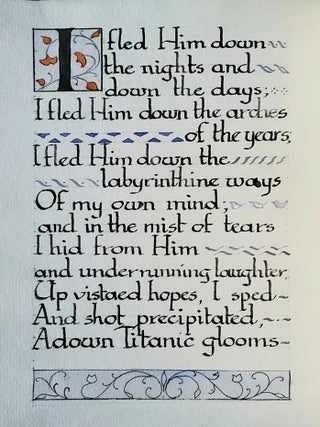 I fled Him down
the nights and
down the days;
I fled Him down the arches
of the years;
I fled Him down the
labyrinthine ways
Of my own mind;
and in the mist of tears
I hid from Him
and under running laughter.
Up vistaed hopes, I sped~
And shot precipitated,~~
Adown Titanic glooms~